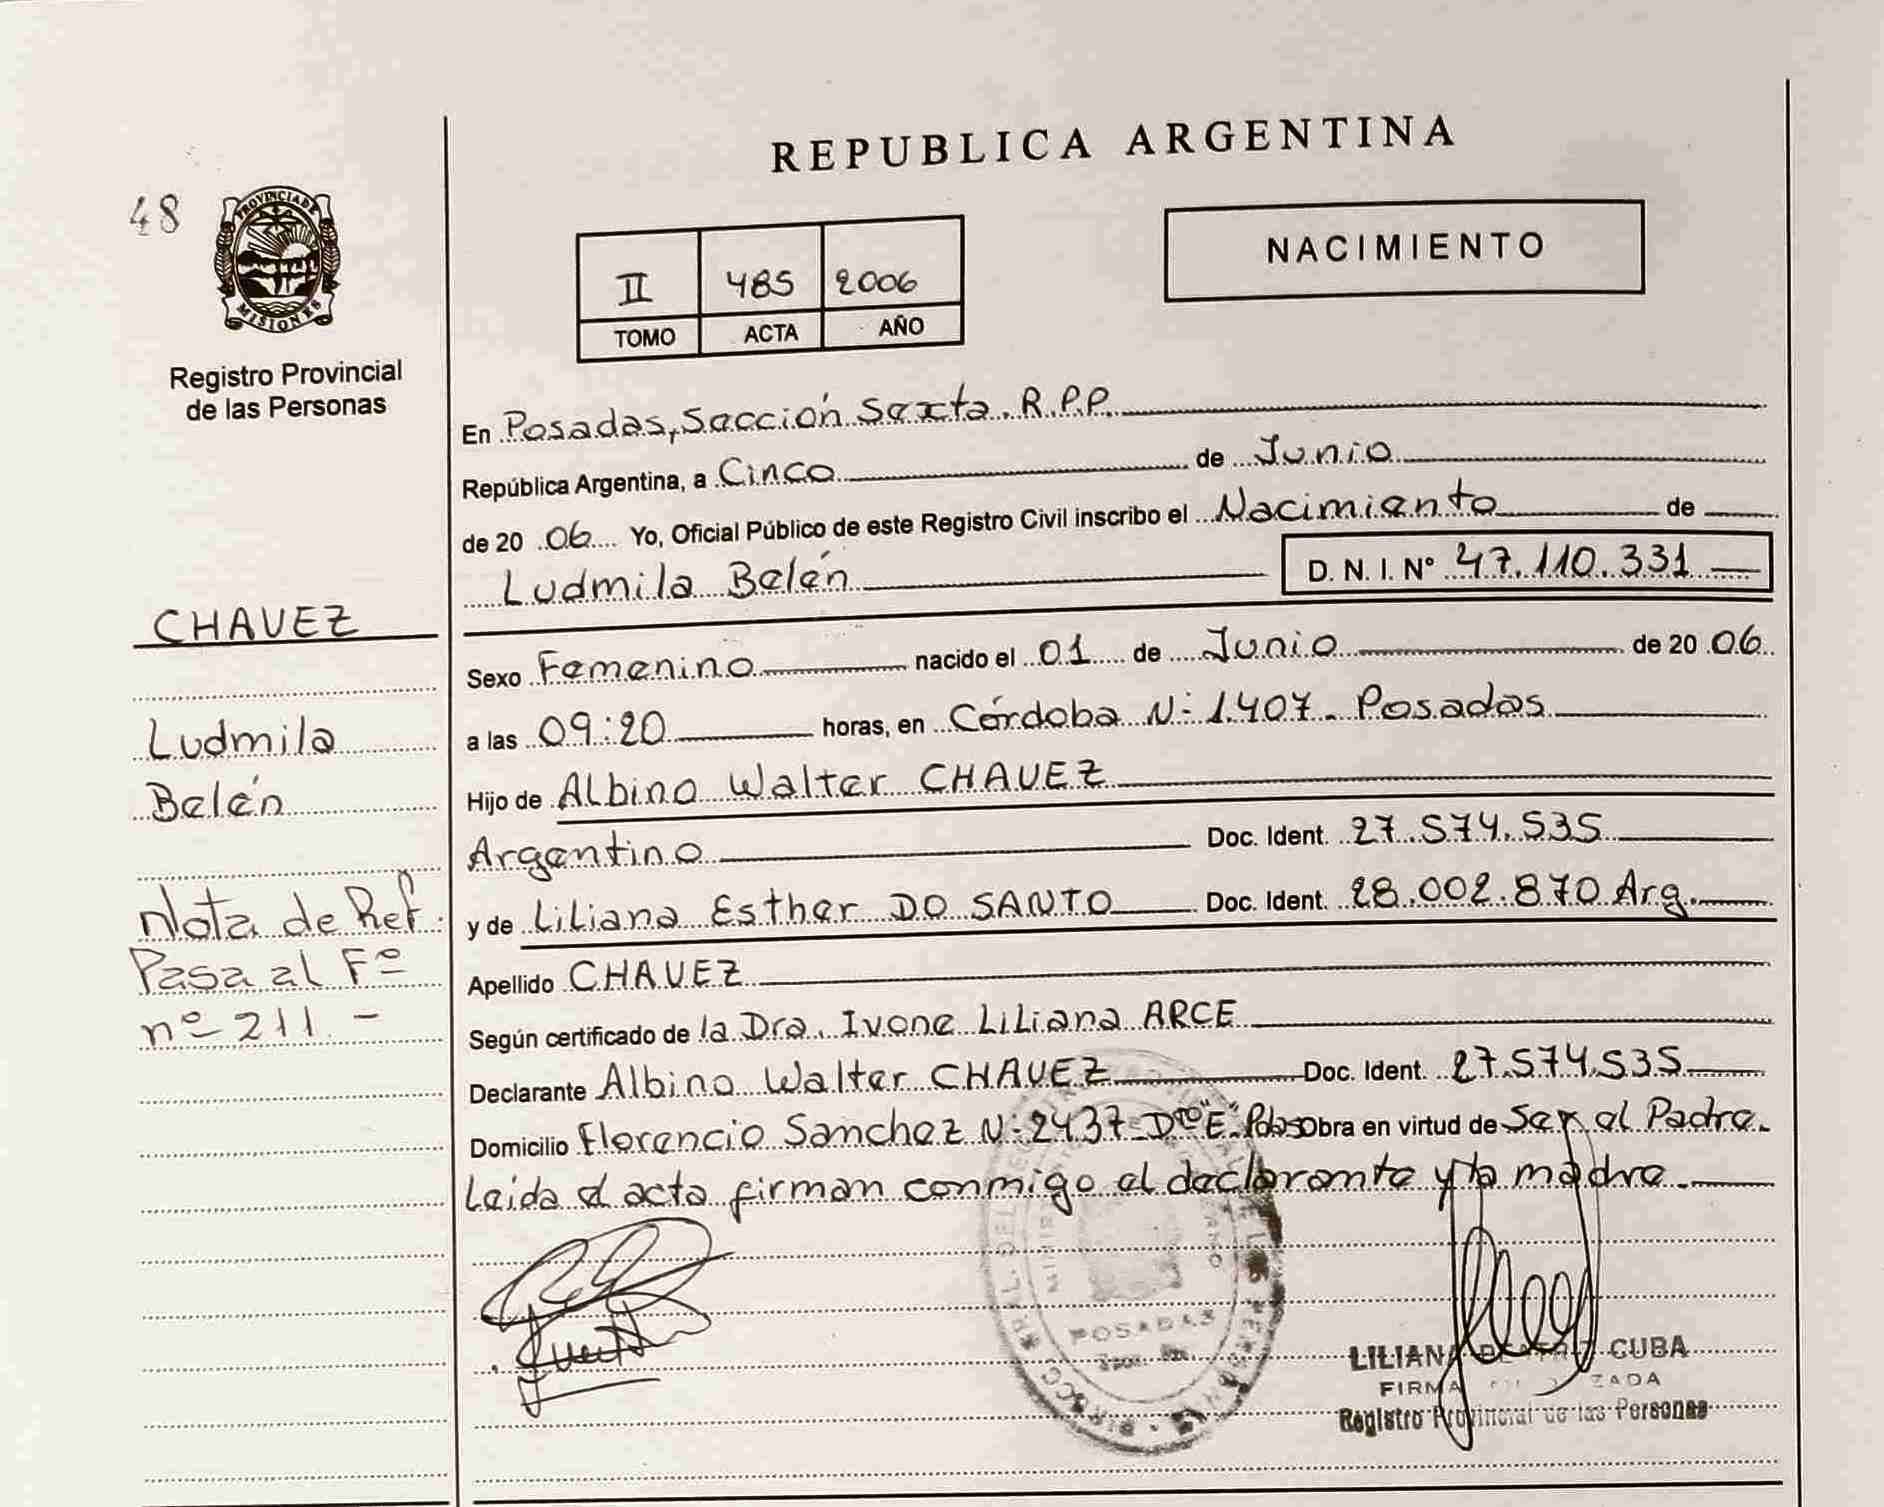 REPUBLICA ARGENTINA
48
PROVINCIA DE
MISIONES
Registro Provincial
de las Personas
II 485 2006
TOMO ACTA AÑO
NACIMIENTO
En Posadas, Sección Sexta. R.P.P.
República Argentina, a Cinco de Junio
de 20 06 Yo, Oficial Público de este Registro Civil inscribo el Nacimiento de
Ludmila Belén D. N. I. Nº 47.110.331
CHAVEZ
Sexo Femenino nacido el 01 de Junio de 20 06
Ludmila
a las 09:20 horas, en Córdoba Nº 1.407. Posadas
Belén
Hijo de Albino Walter CHAVEZ
Argentino Doc. Ident. 27.574.535
Nota de Ref.
y de Liliana Esther DO SANTO Doc. Ident. 28.002.870 Arg.
Pasa al Fº
Apellido CHAVEZ
nº 211. -
Según certificado de la Dra. Ivone Liliana ARCE
Declarante Albino Walter CHAVEZ Doc. Ident. 27.574.535
Domicilio Florencio Sanchez Nº 2437 Dto "E" Pdas Obra en virtud de Ser el Padre.
Leida el acta firman conmigo el declarante y la madre.
POSADAS
LILIANA CUBA
FIRMA
Registro Provincial de las Personas